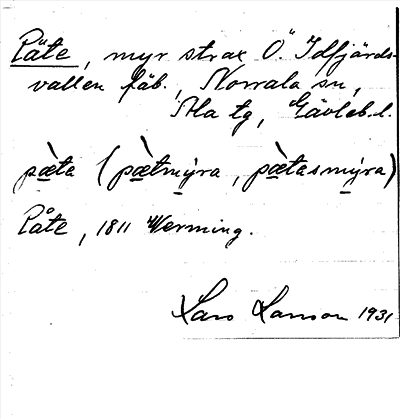 Päte, myr strax Ö. Idfjärds-
vallen fäb., Norrala sn,
Ala tg, Gävleb. l.
pæ̀ta (pæ̀tmýra, pæ̀tasmýra)
Påte, 1811 Werming.
Lars Larsson 1931